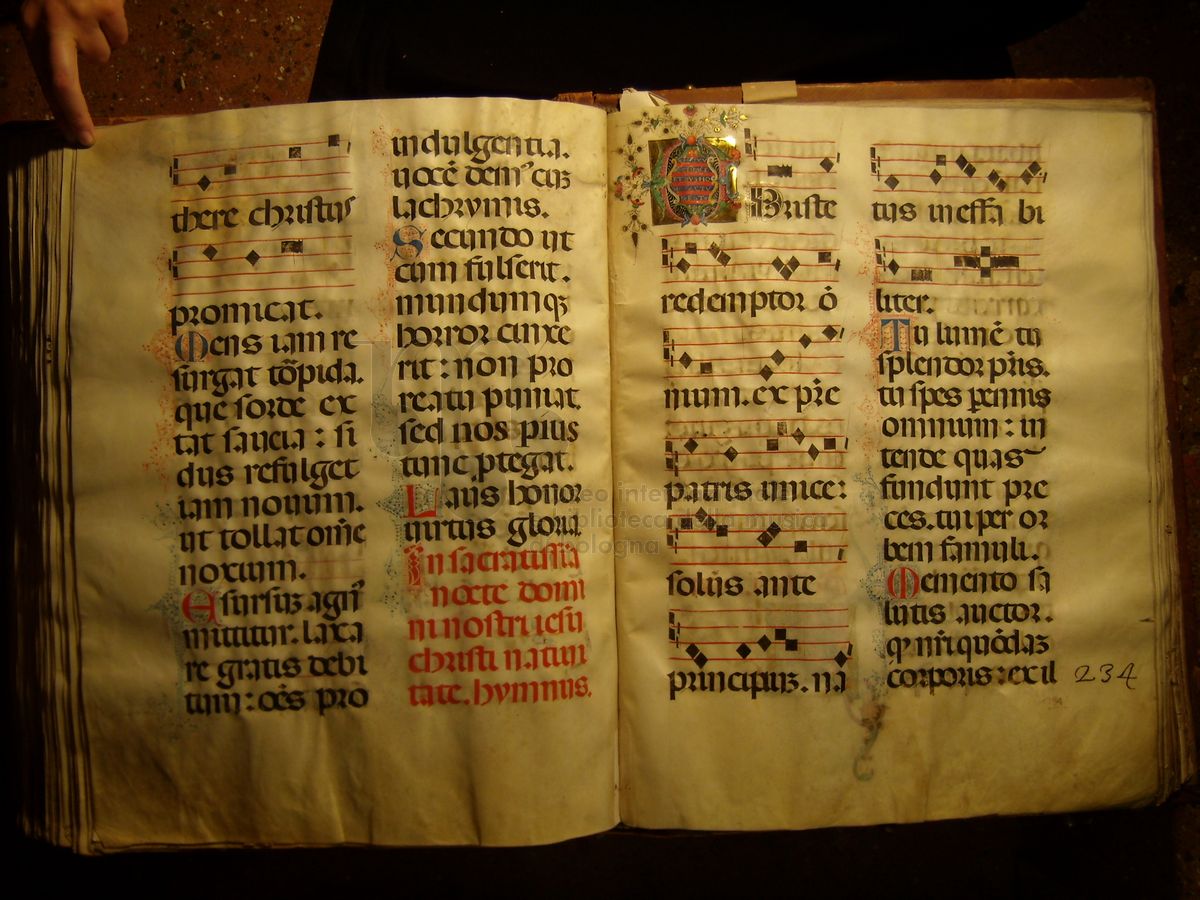 there christus
promicat.
Mens iam re
surgat tōpida.
que sorde ex
tat saucia : si
dus refulget
iam novum.
ut tollat om̄e
noxium.
E sursuz agn̄
mittitur. laxa
re gratis debi
tum : oēs pro
indulgentia.
vocē dem' cuz
lachrymis.
Secundo ut
cum fulserit.
mundumqz
horror cinxe
rit : non pro
reatu puniat
sed nos pius
tunc ptegat.
Laus honor
virtus gloria.
In sacratissia
nocte domi
ni nostri iesu
christi nativi
tate. hymnus.
Christe
redemptor ō
nium. ex p̄re
patris unice :
solus ante
principiuz. na
tus ineffa bi
liter.
Tu lumē tu
splendor pr̄is.
tu spes pennis
omnium : in
tende quas
fundunt pre
ces. tui per or
bem famuli.
Memento sa
lutis auctor.
qp nr̄i quōdaz
corporis : ex il
234
museo internazionale
biblioteca della musica
bologna